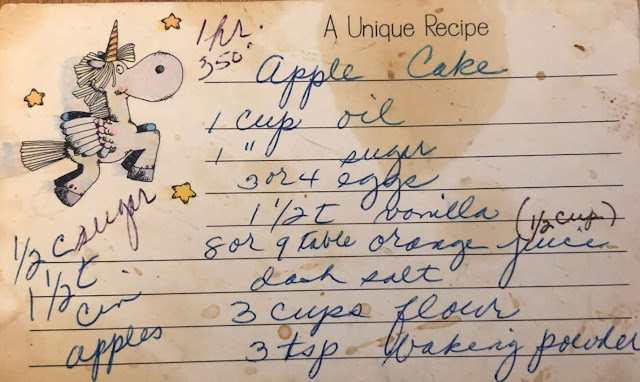 A Unique Recipe
1 hr.
350°
Apple Cake
1 cup oil
1 " sugar
3 or 4 eggs
1 1/2 t vanilla
(1/2 cup)
8 or 9 table orange juice
dash salt
3 cups flour
3 tsp baking powder
1/2 c sugar
1 1/2 t
cin
apples